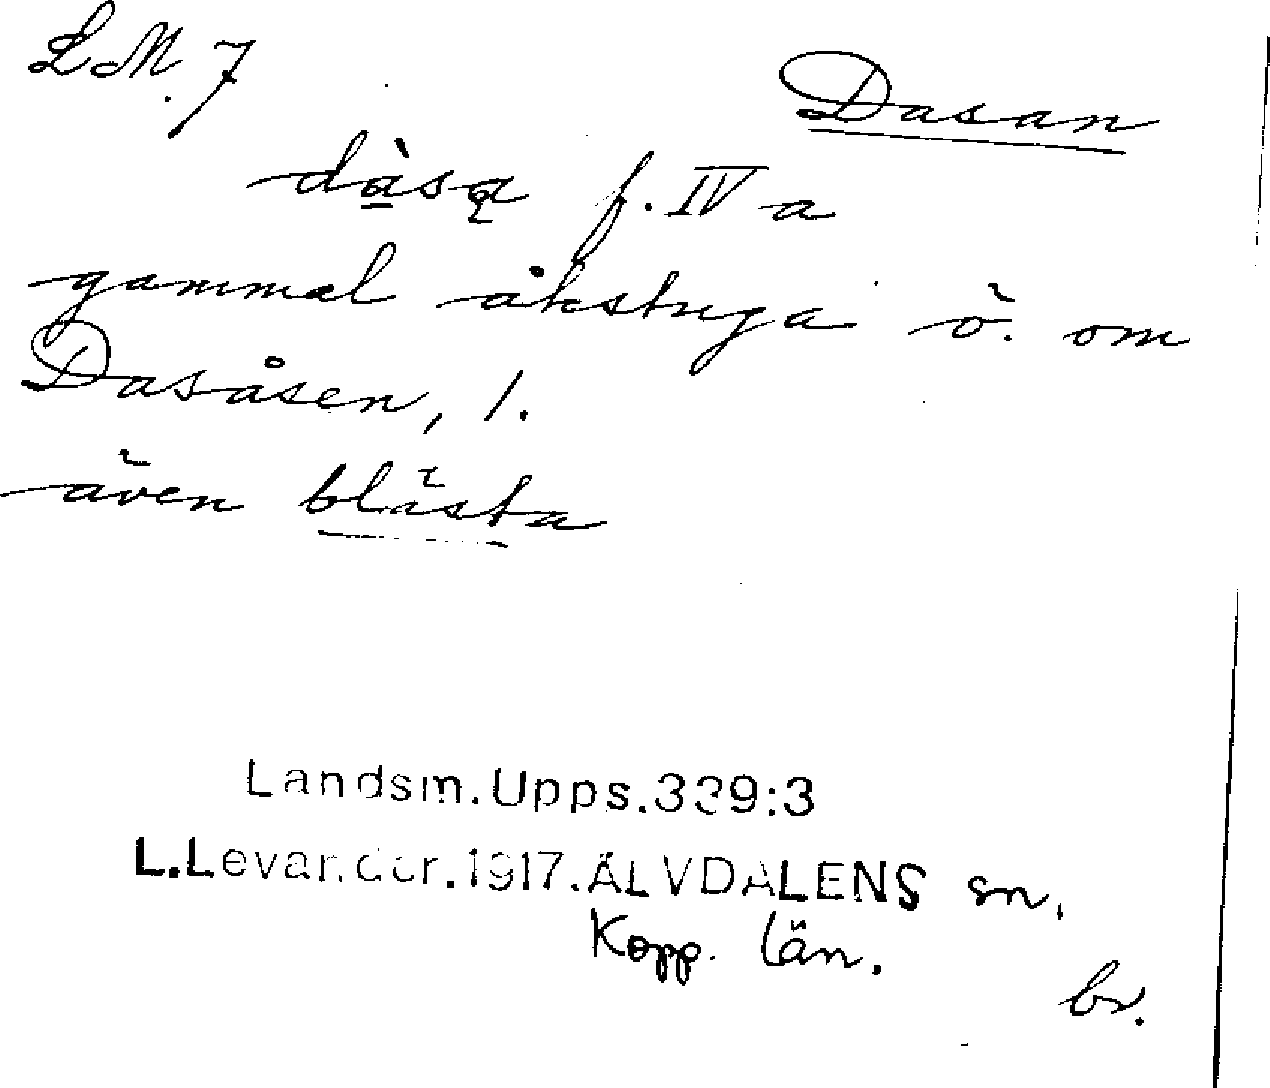 LM. 7
Dasan
dàsą f. IV a
gammal åkstuga ö. om
Dasåsen, 1.
även blästa
Landsm.Upps.339:3
L.Levander.1917.ÄLVDALENS sn.
Kopp. län.
bv.